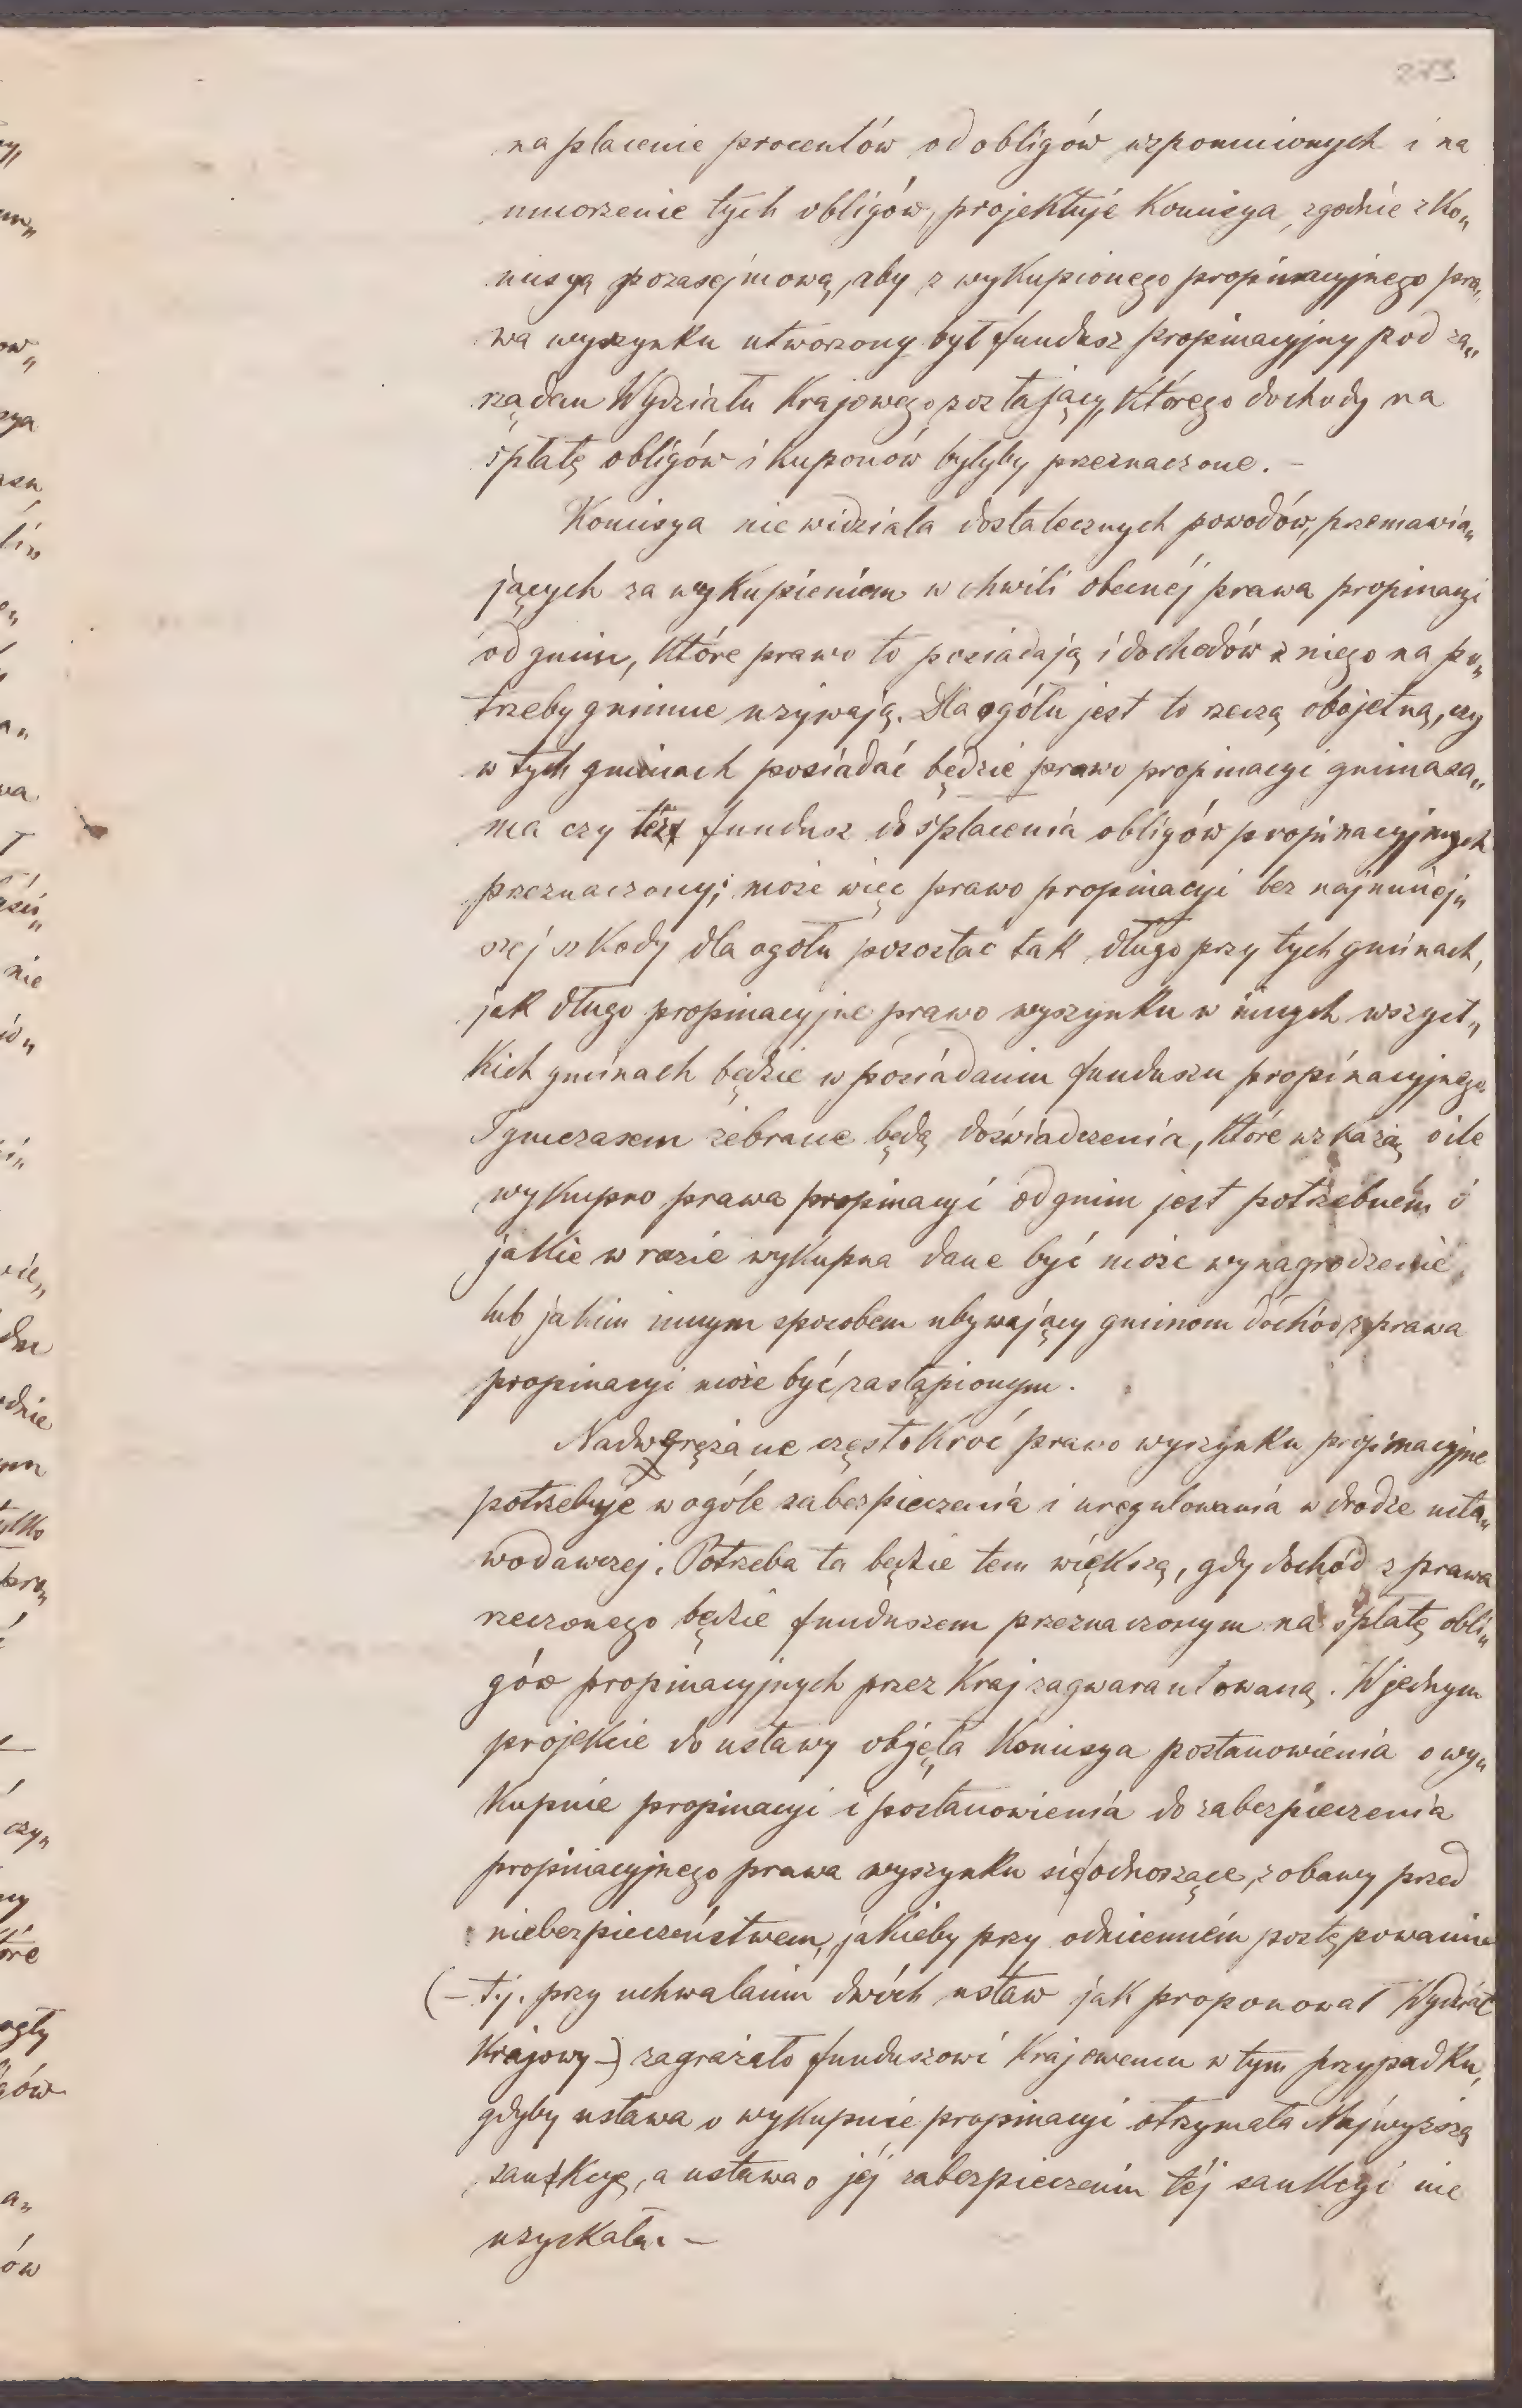 273
na płacenie procentów od obligów wspomnionych i na
umorzenie tych obligów, projektuje Komisya, zgodnie z Ko„
misyą pozasejmową, aby z wykupionego propinacyjnego pra„
wa wyszynku utworzony był fundusz propinacyjny pod za„
rządem Wydziału Krajowego zostający, którego dochody na
spłatę obligów i kuponów byłyby przeznaczone. –
Komisya nie widziała dostatecznych powodów, przemawia„
jących za wykupieniem w chwili obecnéj prawa propinacyi
od gmin, które prawo to posiadają i dochodów z niego na po„
trzeby gminne używają. Dla ogółu jest to rzeczą obojętną, czy
w tych gminach posiadać będzie prawo propinacyi gmina sa„
ma czy też fundusz do spłacenia obligów propinacyjnych
przeznaczony; może więc prawo propinacyi bez najmniej„
szej szkody dla ogółu pozostać tak długo przy tych gminach,
jak długo propinacyjne prawo wyszynku w innych wszyst„
kich gminach będzie w posiadaniu funduszu propinacyjnego.
Tymczasem zebrane będą doświadczenia, które wskażą o ile
wykupno prawa propinacyi od gmin jest potrzebném i
jakie w razie wykupna dane być może wynagrodzenie,
lub jakim innym sposobem ubywający gminom dochód z prawa
propinacyi może być zastąpionym.
Nadwerężane częstokroć prawo wyszynku propinacyjne
potrzebuje w ogóle zabezpieczenia i uregulowania w drodze usta„
wodawczej. Potrzeba ta będzie tem większą, gdy dochód z prawa
rzeczonego będzie funduszem przeznaczonym na spłatę obli„
gów propinacyjnych przez Kraj zagwarantowaną. W jednym
projekcie do ustawy objęła Komisya postanowienia o wy„
kupnie propinacyi i postanowienia do zabezpieczenia
propinacyjnego prawa wyszynku się odnoszące, z obawy przed
niebezpieczeństwem, jakieby przy odmienném postępowaniu
(– t.j. przy uchwalaniu dwóch ustaw jak proponował Wydział
Krajowy –) zagrażało funduszowi Krajowemu w tym przypadku,
gdyby ustawa o wykupnie propinacyi otrzymała Najwyższą
sankcyę, a ustawa o jéj zabezpieczeniu téj sankcyi nie
uzyskała. –